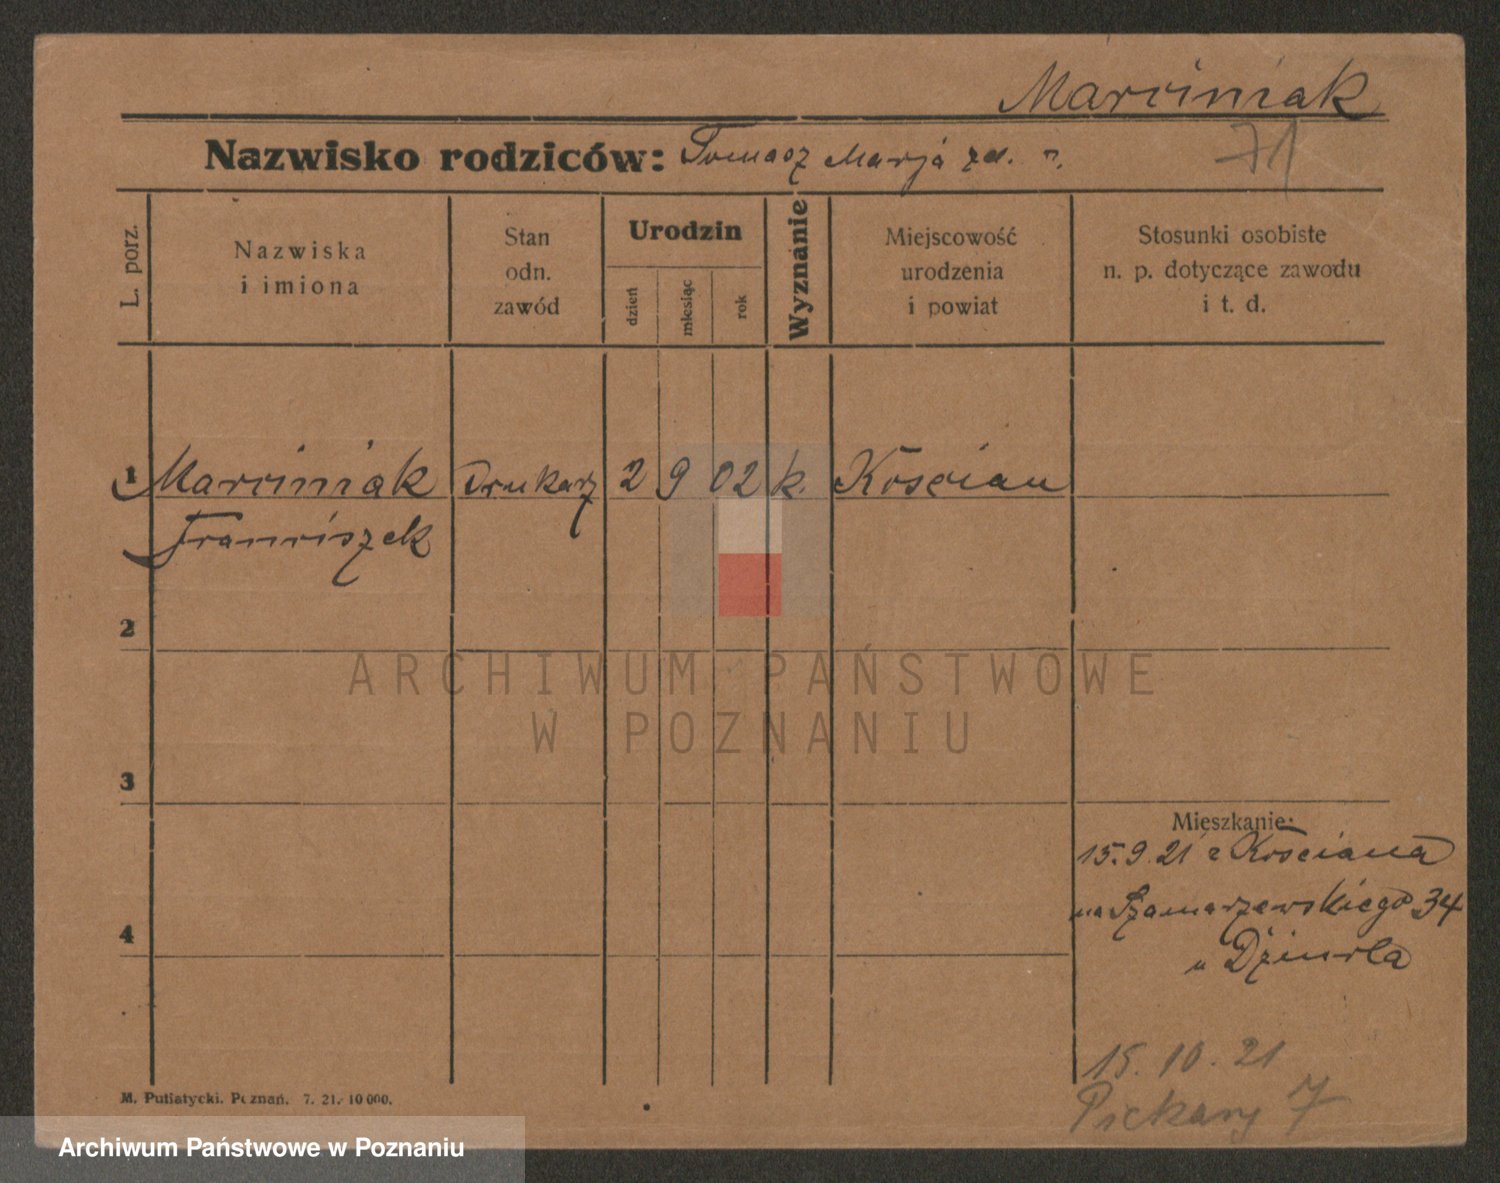 Marciniak
71
Nazwisko rodziców: Tomasz Marja
L. porz.
Nazwiska
i imiona
Stan
odn.
zawód
Urodzin
dzień
miesiąc
rok
Wyznanie
Miejscowość
urodzenia
i powiat
Stosunki osobiste
n. p. dotyczące zawodu
i t. d.
1 Marciniak Drukarz 2 9 02 k. Kościan
Franciszek
2
ARCHIWUM PAŃSTWOWE
W POZNANIU
3
Mieszkanie:
15.9.21 z Kościana
na Szamarzewskiego 34
4
u
15.10.21
Piekary 7
M. Putiatycki. Poznań. 7. 21. 10 000.
Archiwum Państwowe w Poznaniu